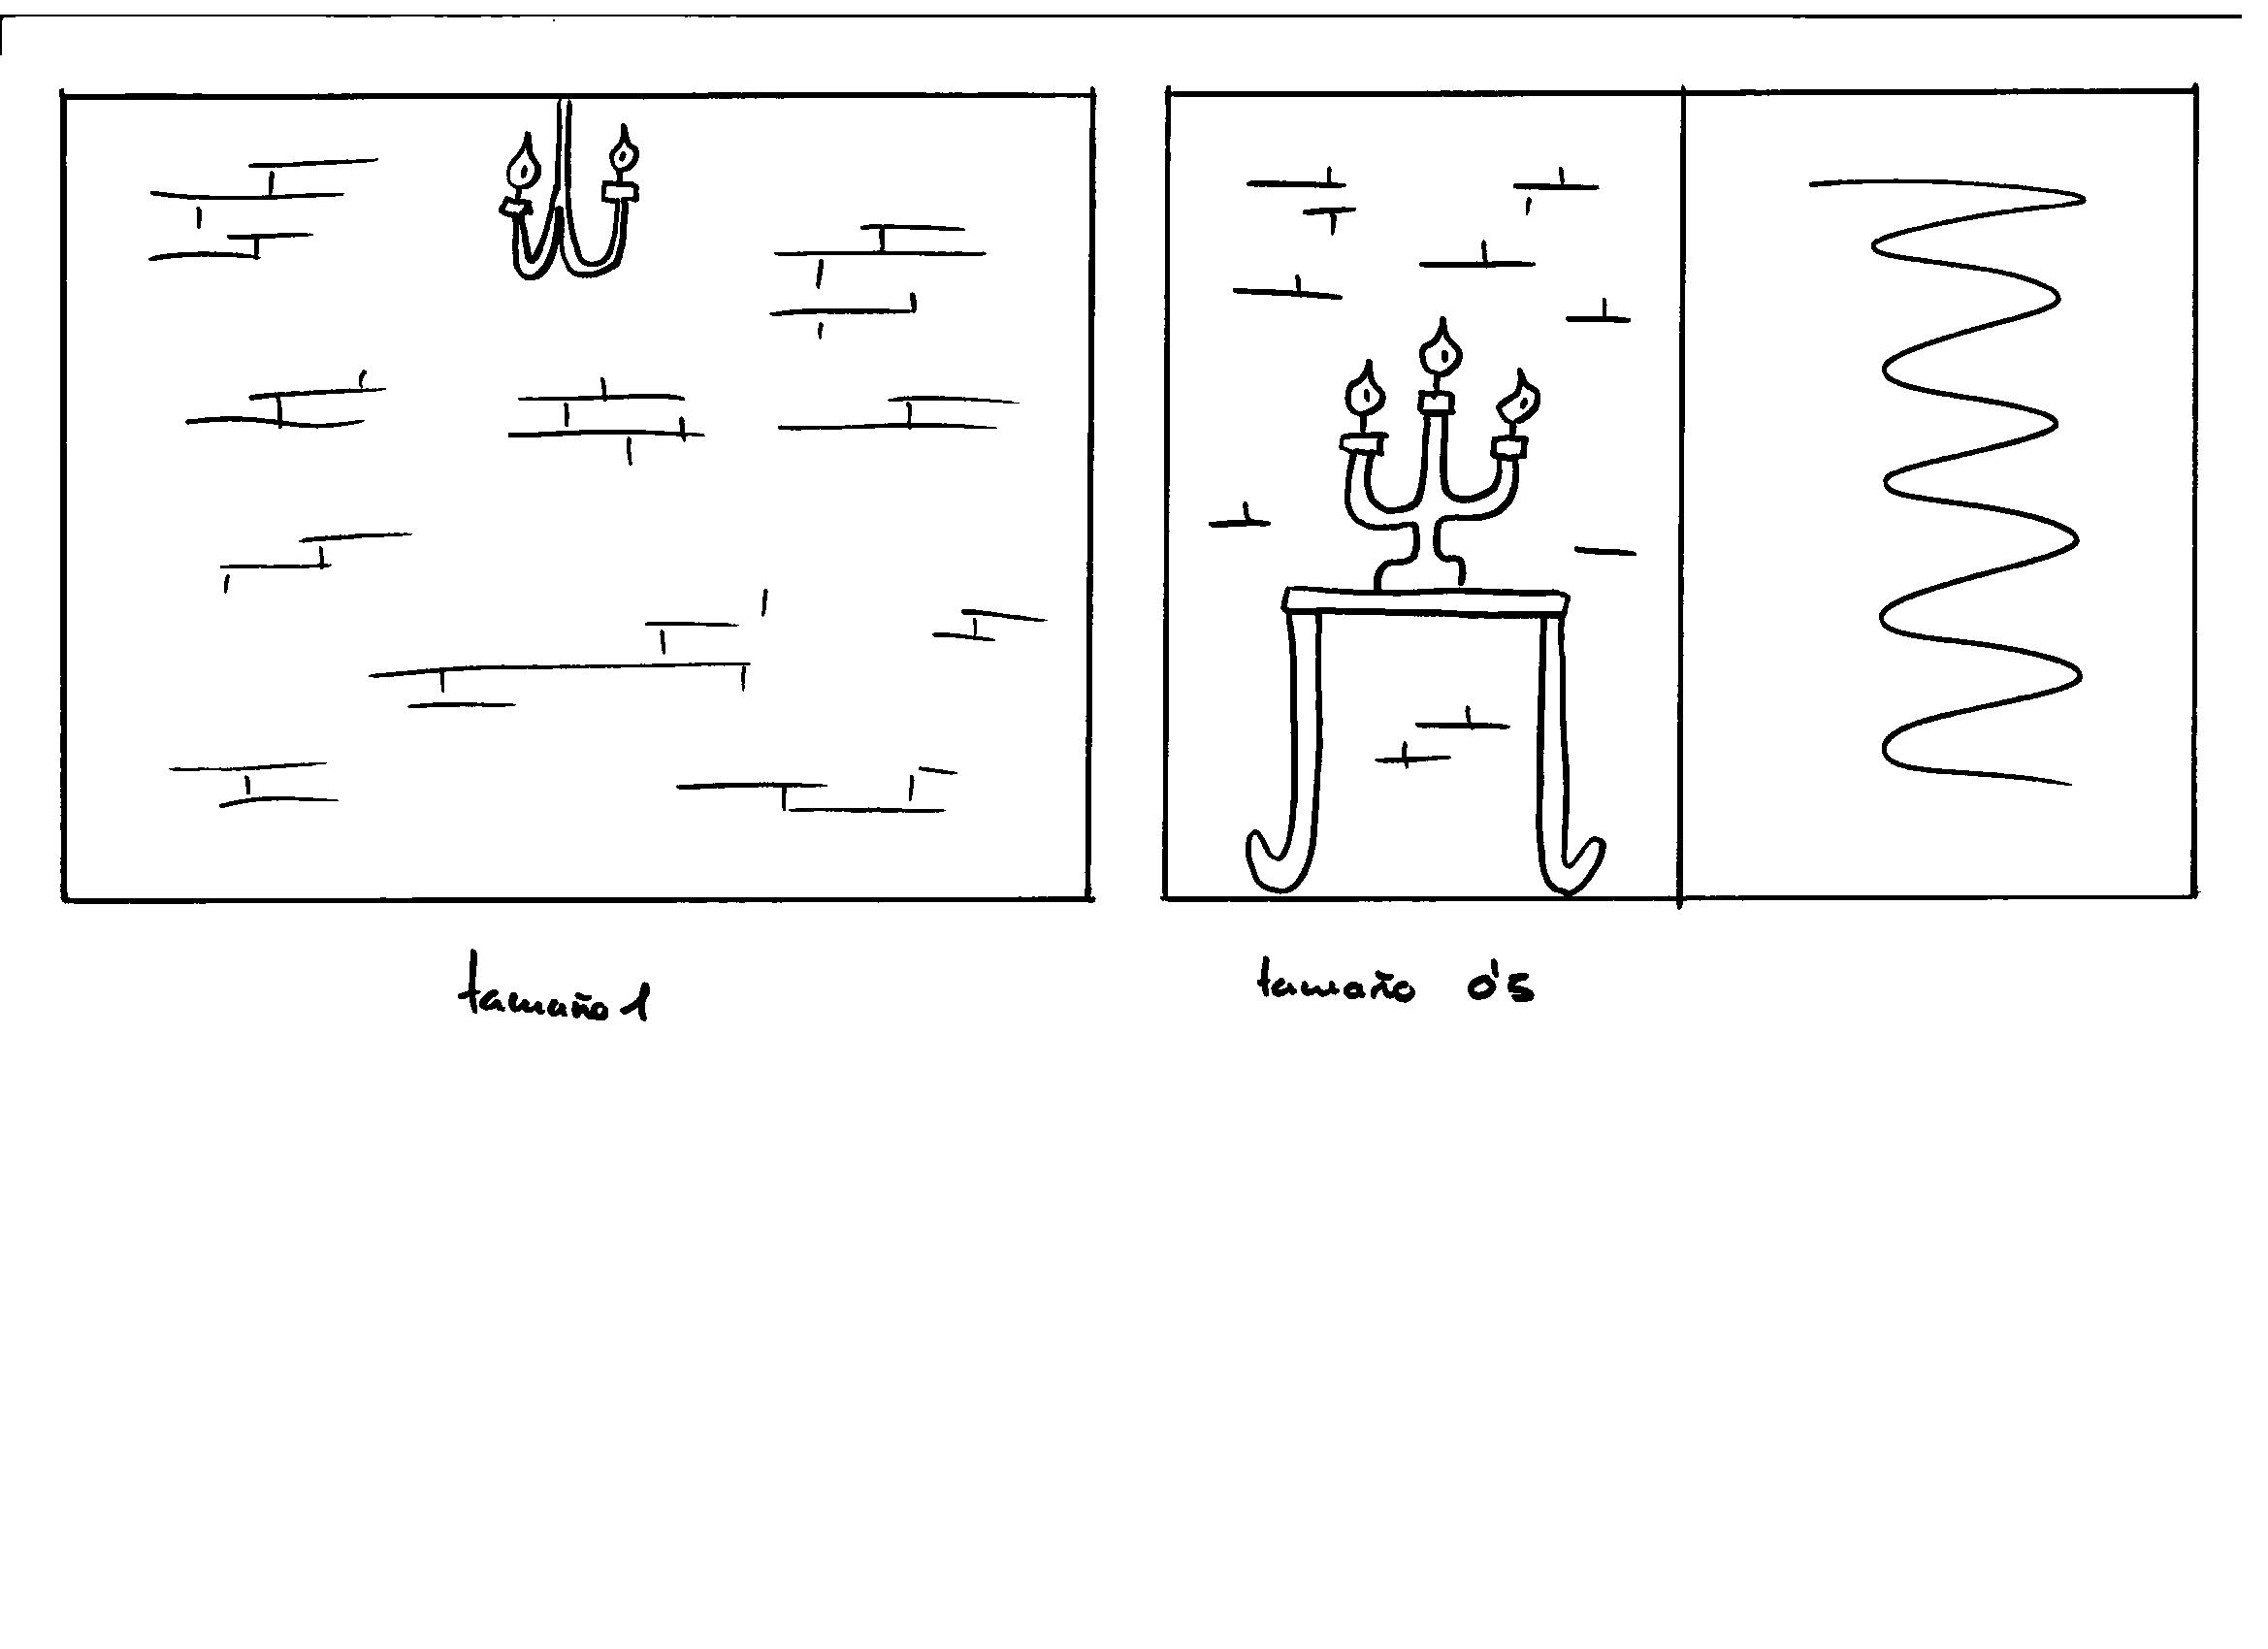 tamaño 1
tamaño 0'5